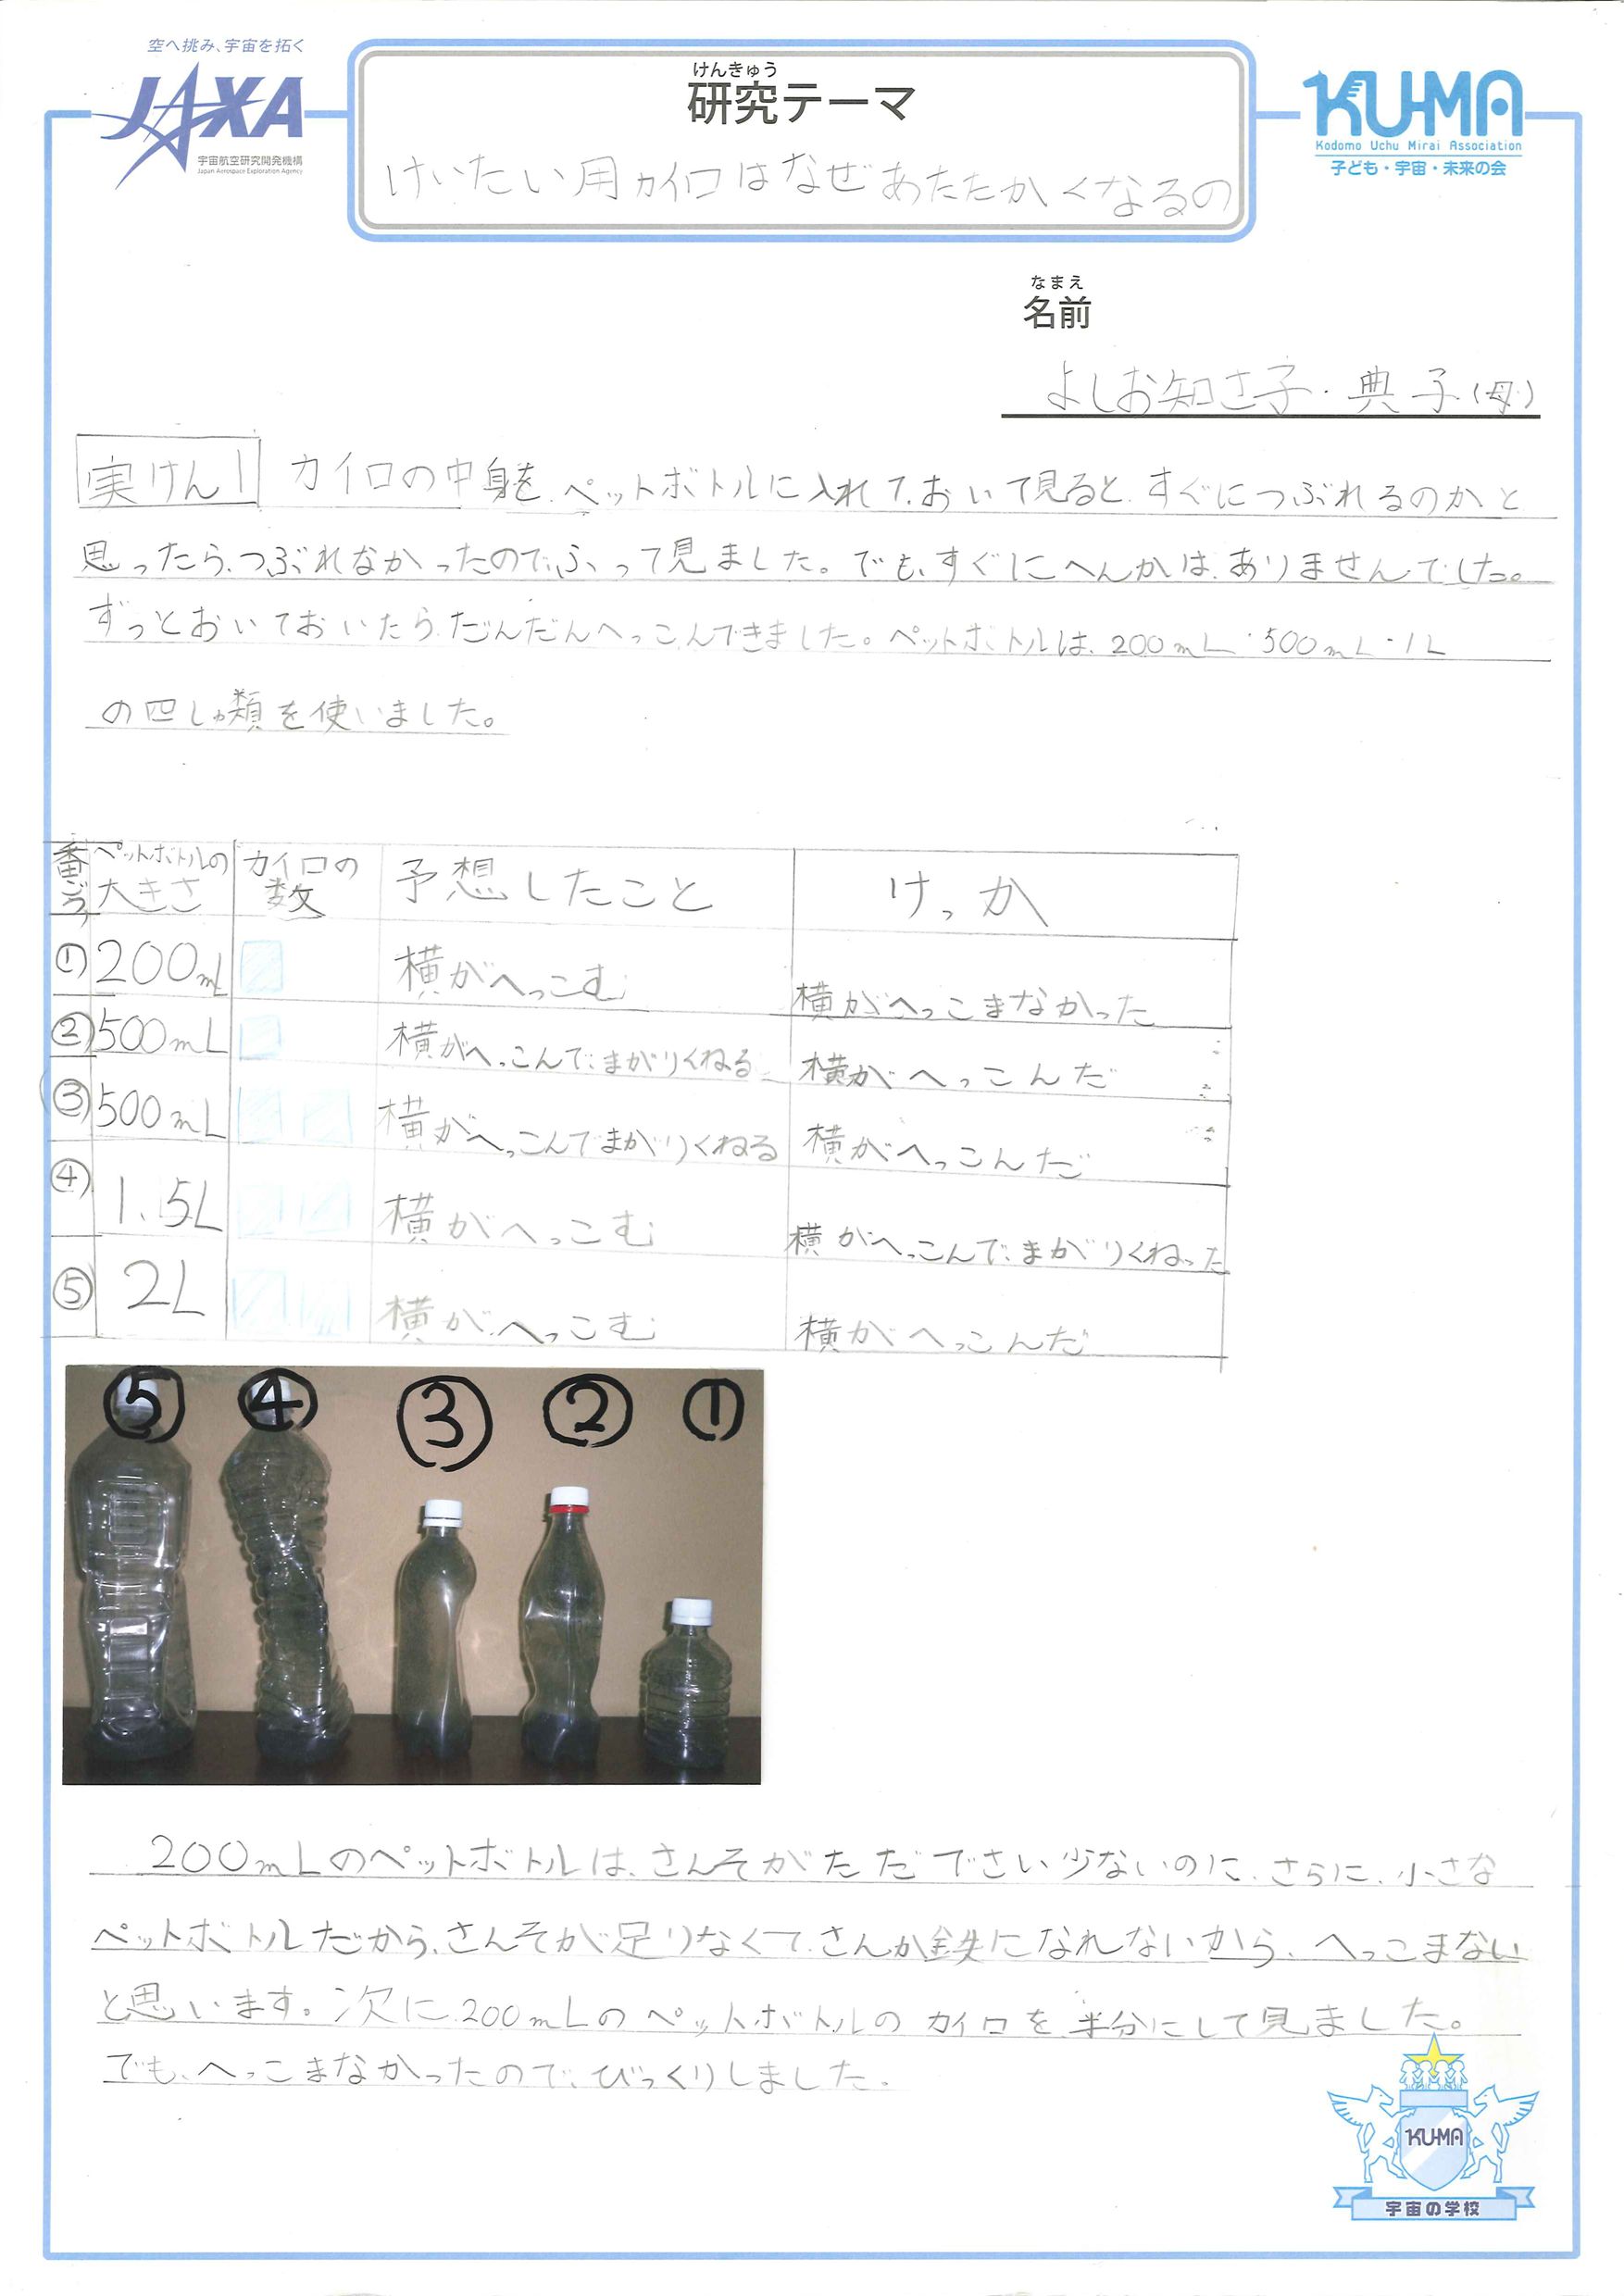 空へ挑み、宇宙を拓く
JAXA
宇宙航空研究開発機構
Japan Aerospace Exploration Agency
けんきゅう
研究テーマ
けいたい用カイロはなぜあたたかくなるの
KU-MA
Kodomo Uchu Mirai Association
子ども・宇宙・未来の会
なまえ
名前
よしお知さ子・典子(母)
実けん1 カイロの中身を、ペットボトルに入れて、おいて見ると、すぐにつぶれるのかと
思ったら、つぶれなかったので、ふって見ました。でも、すぐにへんかは、ありませんでした。
ずっとおいておいたら、だんだんへっこんできました。ペットボトルは、200mL・500mL・1L
の四しゅ類を使いました。
番ごう ペットボトルの大きさ カイロの数 予想したこと けっか
① 200mL 横がへっこむ 横がへっこまなかった
② 500mL 横がへっこんで、まがりくねる 横がへっこんだ
③ 500mL 横がへっこんでまがりくねる 横がへっこんだ
④ 1.5L 横がへっこむ 横がへっこんで、まがりくねった
⑤ 2L 横がへっこむ 横がへっこんだ
⑤ ④ ③ ② ①
200mLのペットボトルは、さんそがただでさい少ないのに、さらに、小さな
ペットボトルだから、さんそが足りなくて、さんか鉄になれないから、へっこまない
と思います。次に、200mLのペットボトルのカイロを、半分にして見ました。
でも、へっこまなかったので、びっくりしました。
KU-MA
宇宙の学校